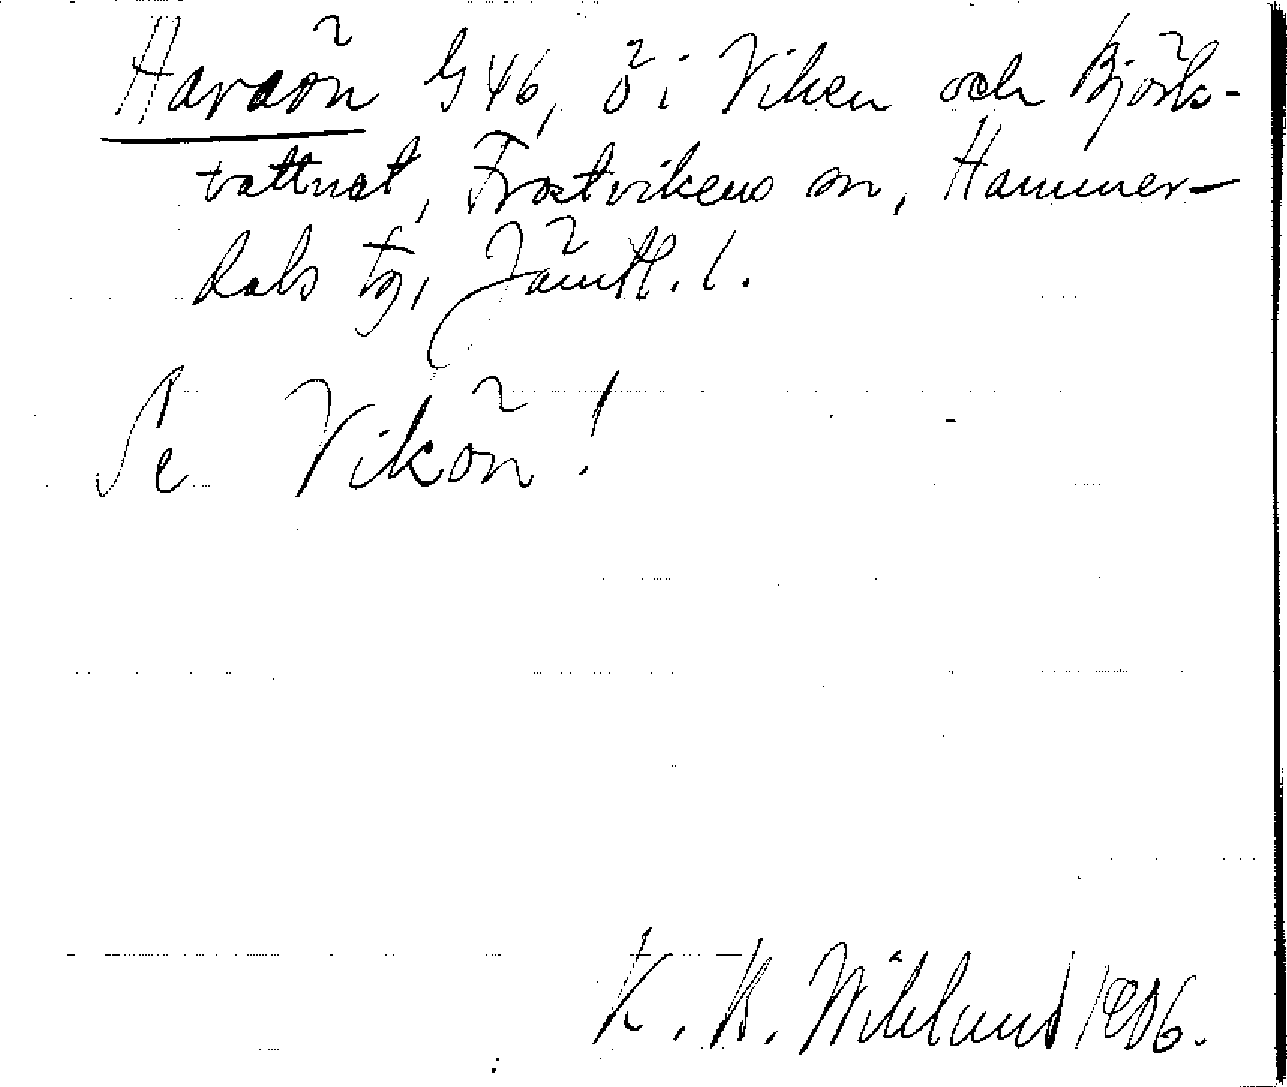 Havaön G46, ö i Viken och Björk-
vattnet, Frostvikens sn, Hammer-
dals tg, Jämtl. l.
Se Vikön!
K. B. Wiklund 1906.